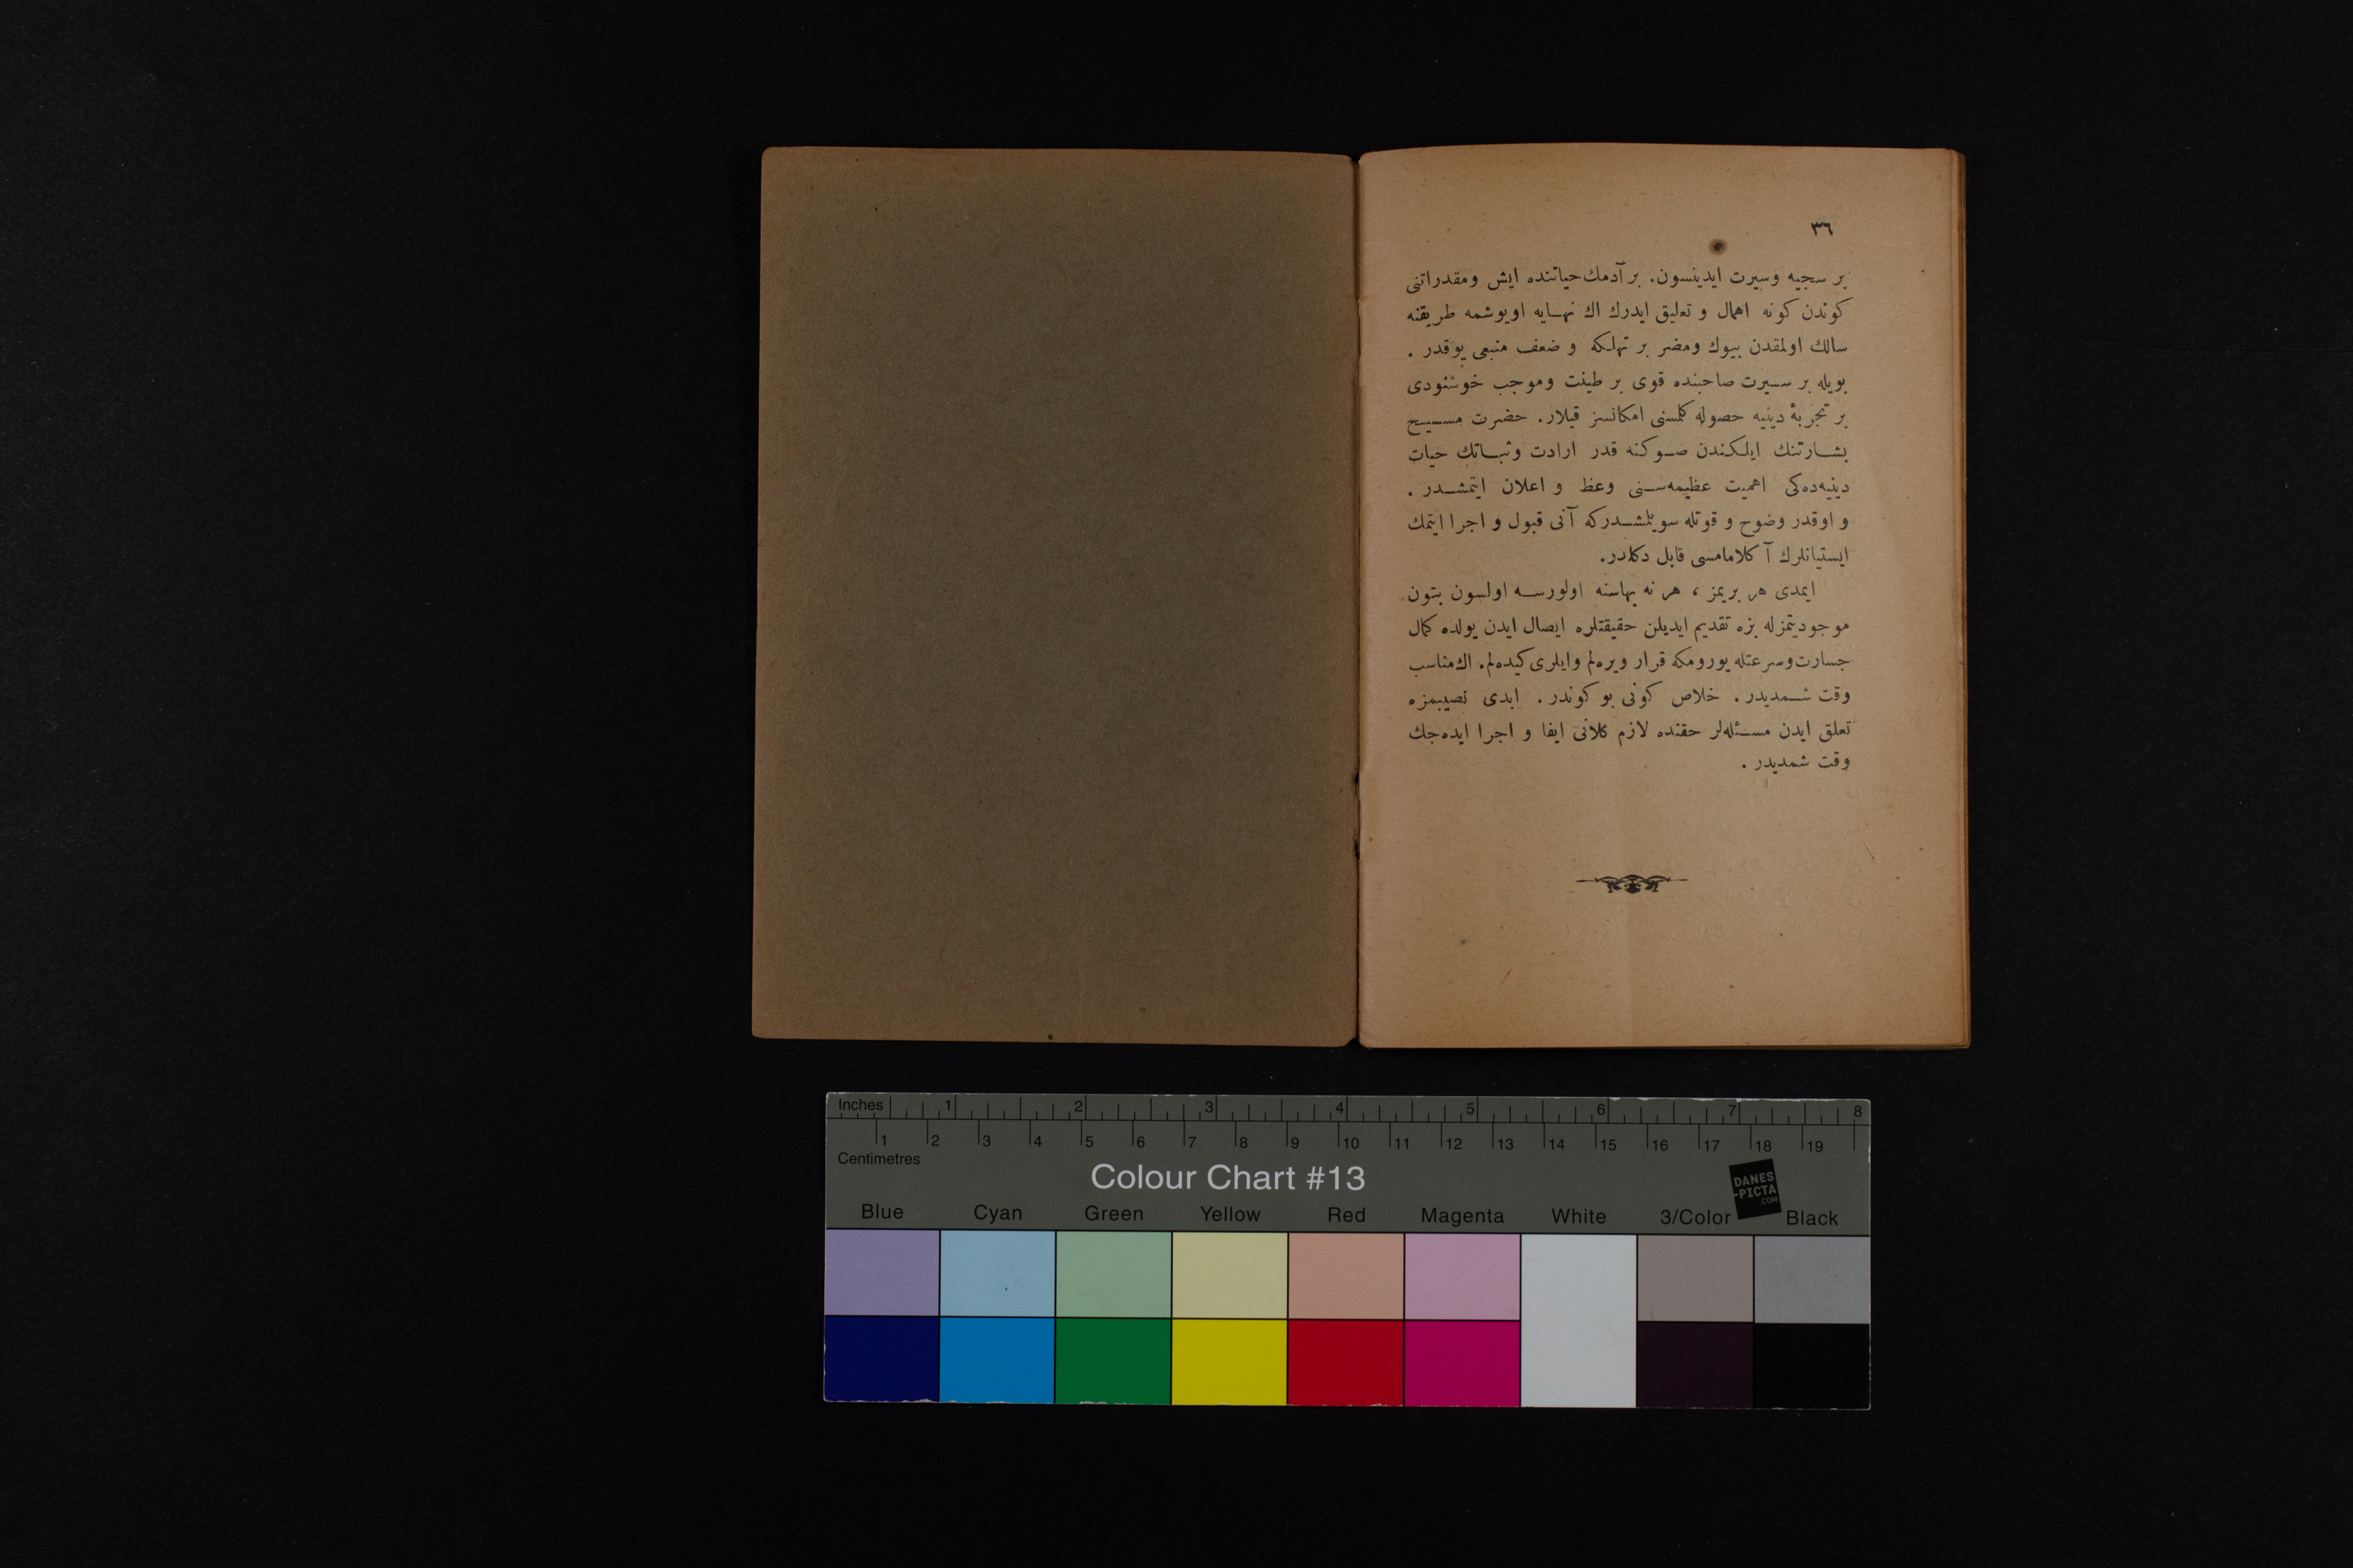 ٣٦
بر سجيه وسيرت ايدينسون. بر آدمك حياتنده ايش ومقدراتنى
كوندن كونه اهمال و تعليق ايدرك اك نهـايه اويوشمه طريقنه
سالك اولمقدن بيوك ومضر بر تهلكه و ضعف منبعى يوقدر .
بويله بر سـيرت صاحبنده قوى بر طينت وموجب خوشنودى
بر تجربۀ دينيه حصوله كلمسنى امكانسز قيلار. حضرت مسـيح
بشـارتنك ايلكندن صـوكنه قدر ارادت وثبـاتك حيات
دينيه‌ده‌كى اهميت عظيمه‌سـنى وعظ و اعلان ايتمشـدر .
و اوقدر وضوح و قوتله سويلمشـدركه آنى قبول و اجرا ايتمك
ايستيانلرك آكلامامسى قابل دكلدر.
ايمدى هر بريمز ، هر نه بهاسنه اولورسـه اولسون بتون
موجوديتمزله بزه تقديم ايديلن حقيقتلره ايصال ايدن يولده كمال
جسارت وسرعتله يورومكه قرار ويره‌لم وايلرى كيده‌لم. اك مناسب
وقت شـمديدر . خلاص كونى بو كوندر . ابدى نصيبمزه
تعلق ايدن مسـئله‌لر حقنده لازم كلانى ايفا و اجرا ايده‌جك
وقت شمديدر .
Inches 1 2 3 4 5 6 7 8
1 2 3 4 5 6 7 8 9 10 11 12 13 14 15 16 17 18 19
Centimetres
Colour Chart #13
DANES
-PICTA
.COM
Blue Cyan Green Yellow Red Magenta White 3/Color Black